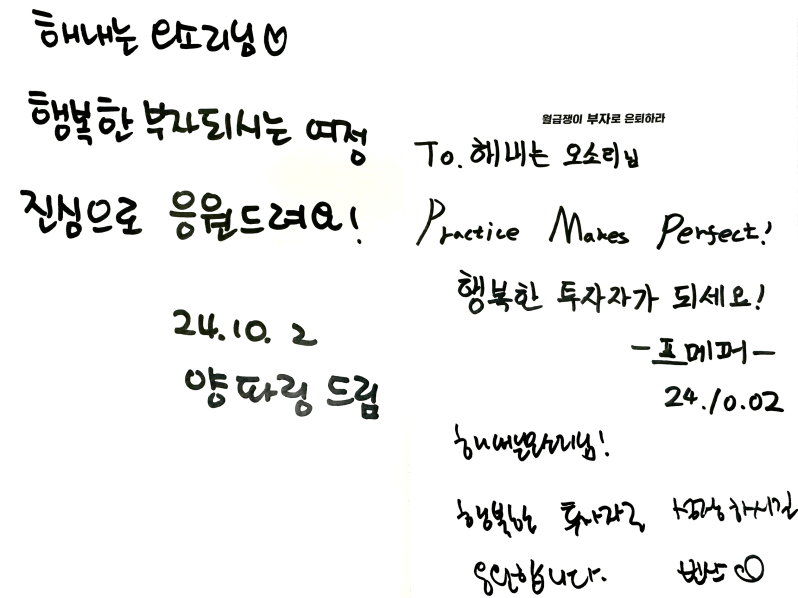 해내는 오소리님♡
행복한 부자되시는 여정
진심으로 응원드려요!
24.10. 2
양파링 드림
월급쟁이 부자로 은퇴하라
To. 해내는 오소리님
Practice Makes Perfect!
행복한 투자자가 되세요!
-프메퍼-
24.10.02
해내는오소리님!
행복한 투자자로 성장하시길
응원합니다.